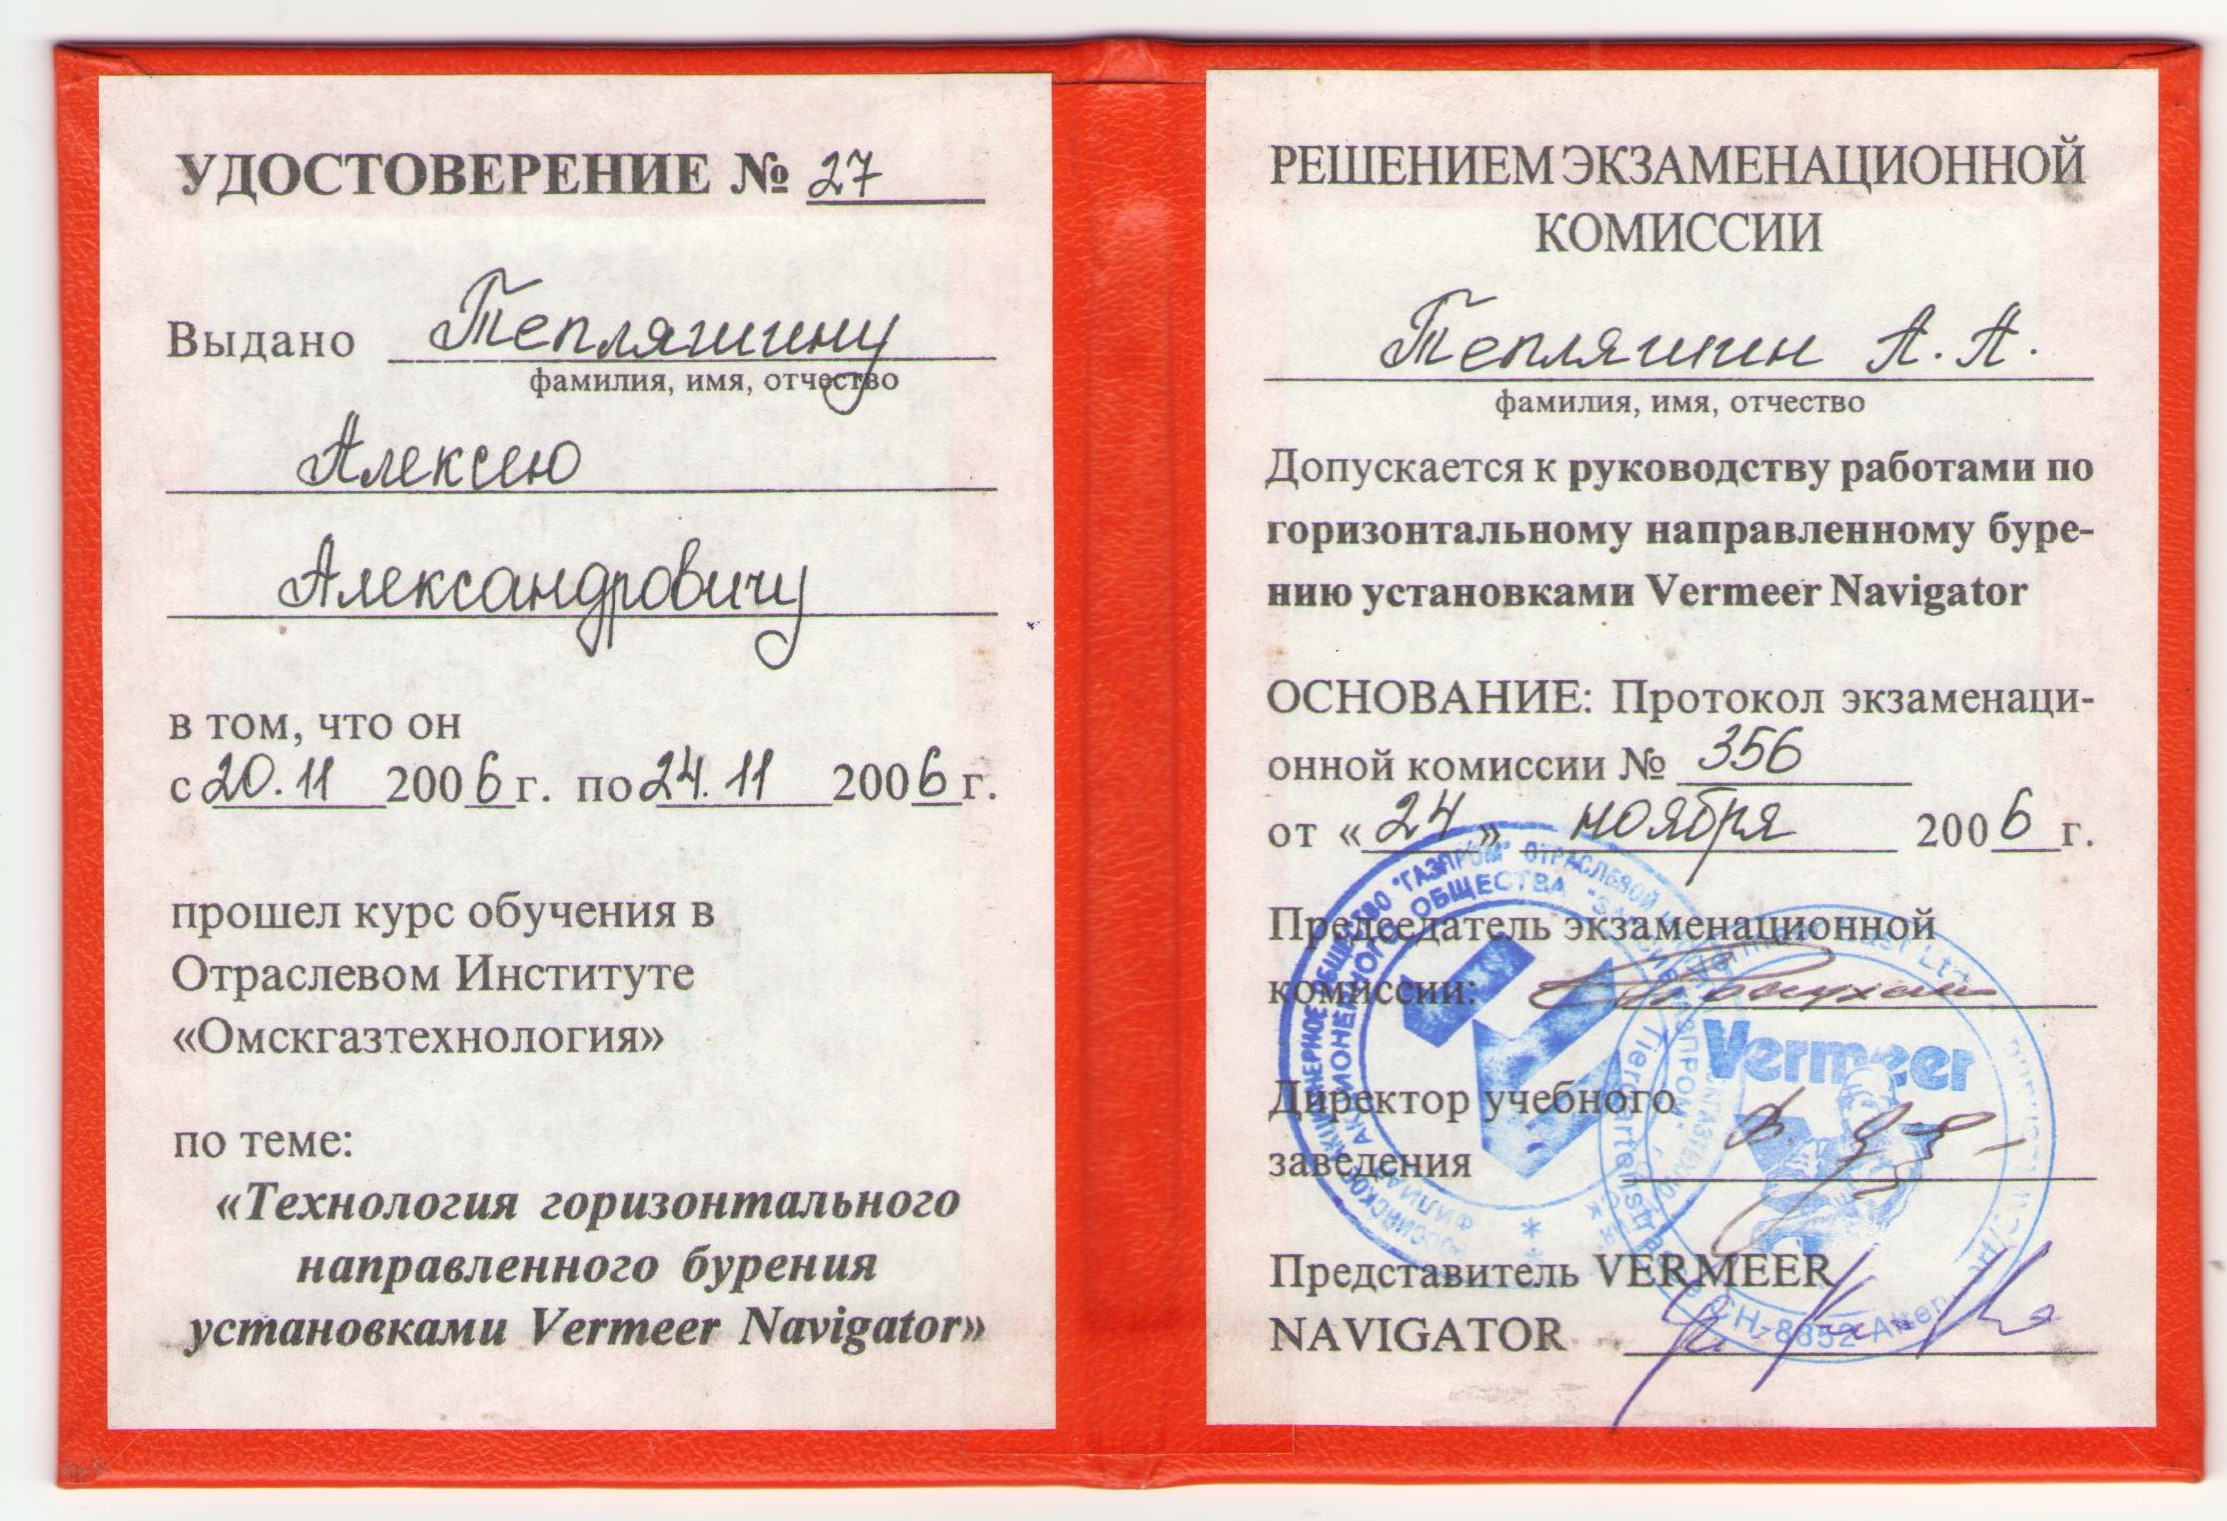 УДОСТОВЕРЕНИЕ № 27
Выдано Тепляшину
фамилия, имя, отчество
Алексею
Александровичу
в том, что он
с 20.11 2006 г. по 24.11 2006 г.
прошел курс обучения в
Отраслевом Институте
«Омскгазтехнология»
по теме:
«Технология горизонтального
направленного бурения
установками Vermeer Navigator»
РЕШЕНИЕМ ЭКЗАМЕНАЦИОННОЙ
КОМИССИИ
Тепляшин А. А.
фамилия, имя, отчество
Допускается к руководству работами по
горизонтальному направленному буре-
нию установками Vermeer Navigator
ОСНОВАНИЕ: Протокол экзаменаци-
онной комиссии № 356
от «24» ноября 2006 г.
Председатель экзаменационной
комиссии:
Директор учебного
заведения
Представитель VERMEER
NAVIGATOR
"ГАЗПРОМ" ОТРАСЛЕВОЙ
ОБЩЕСТВА
ФИЛИАЛ
Vermeer
CH-8852 Alten